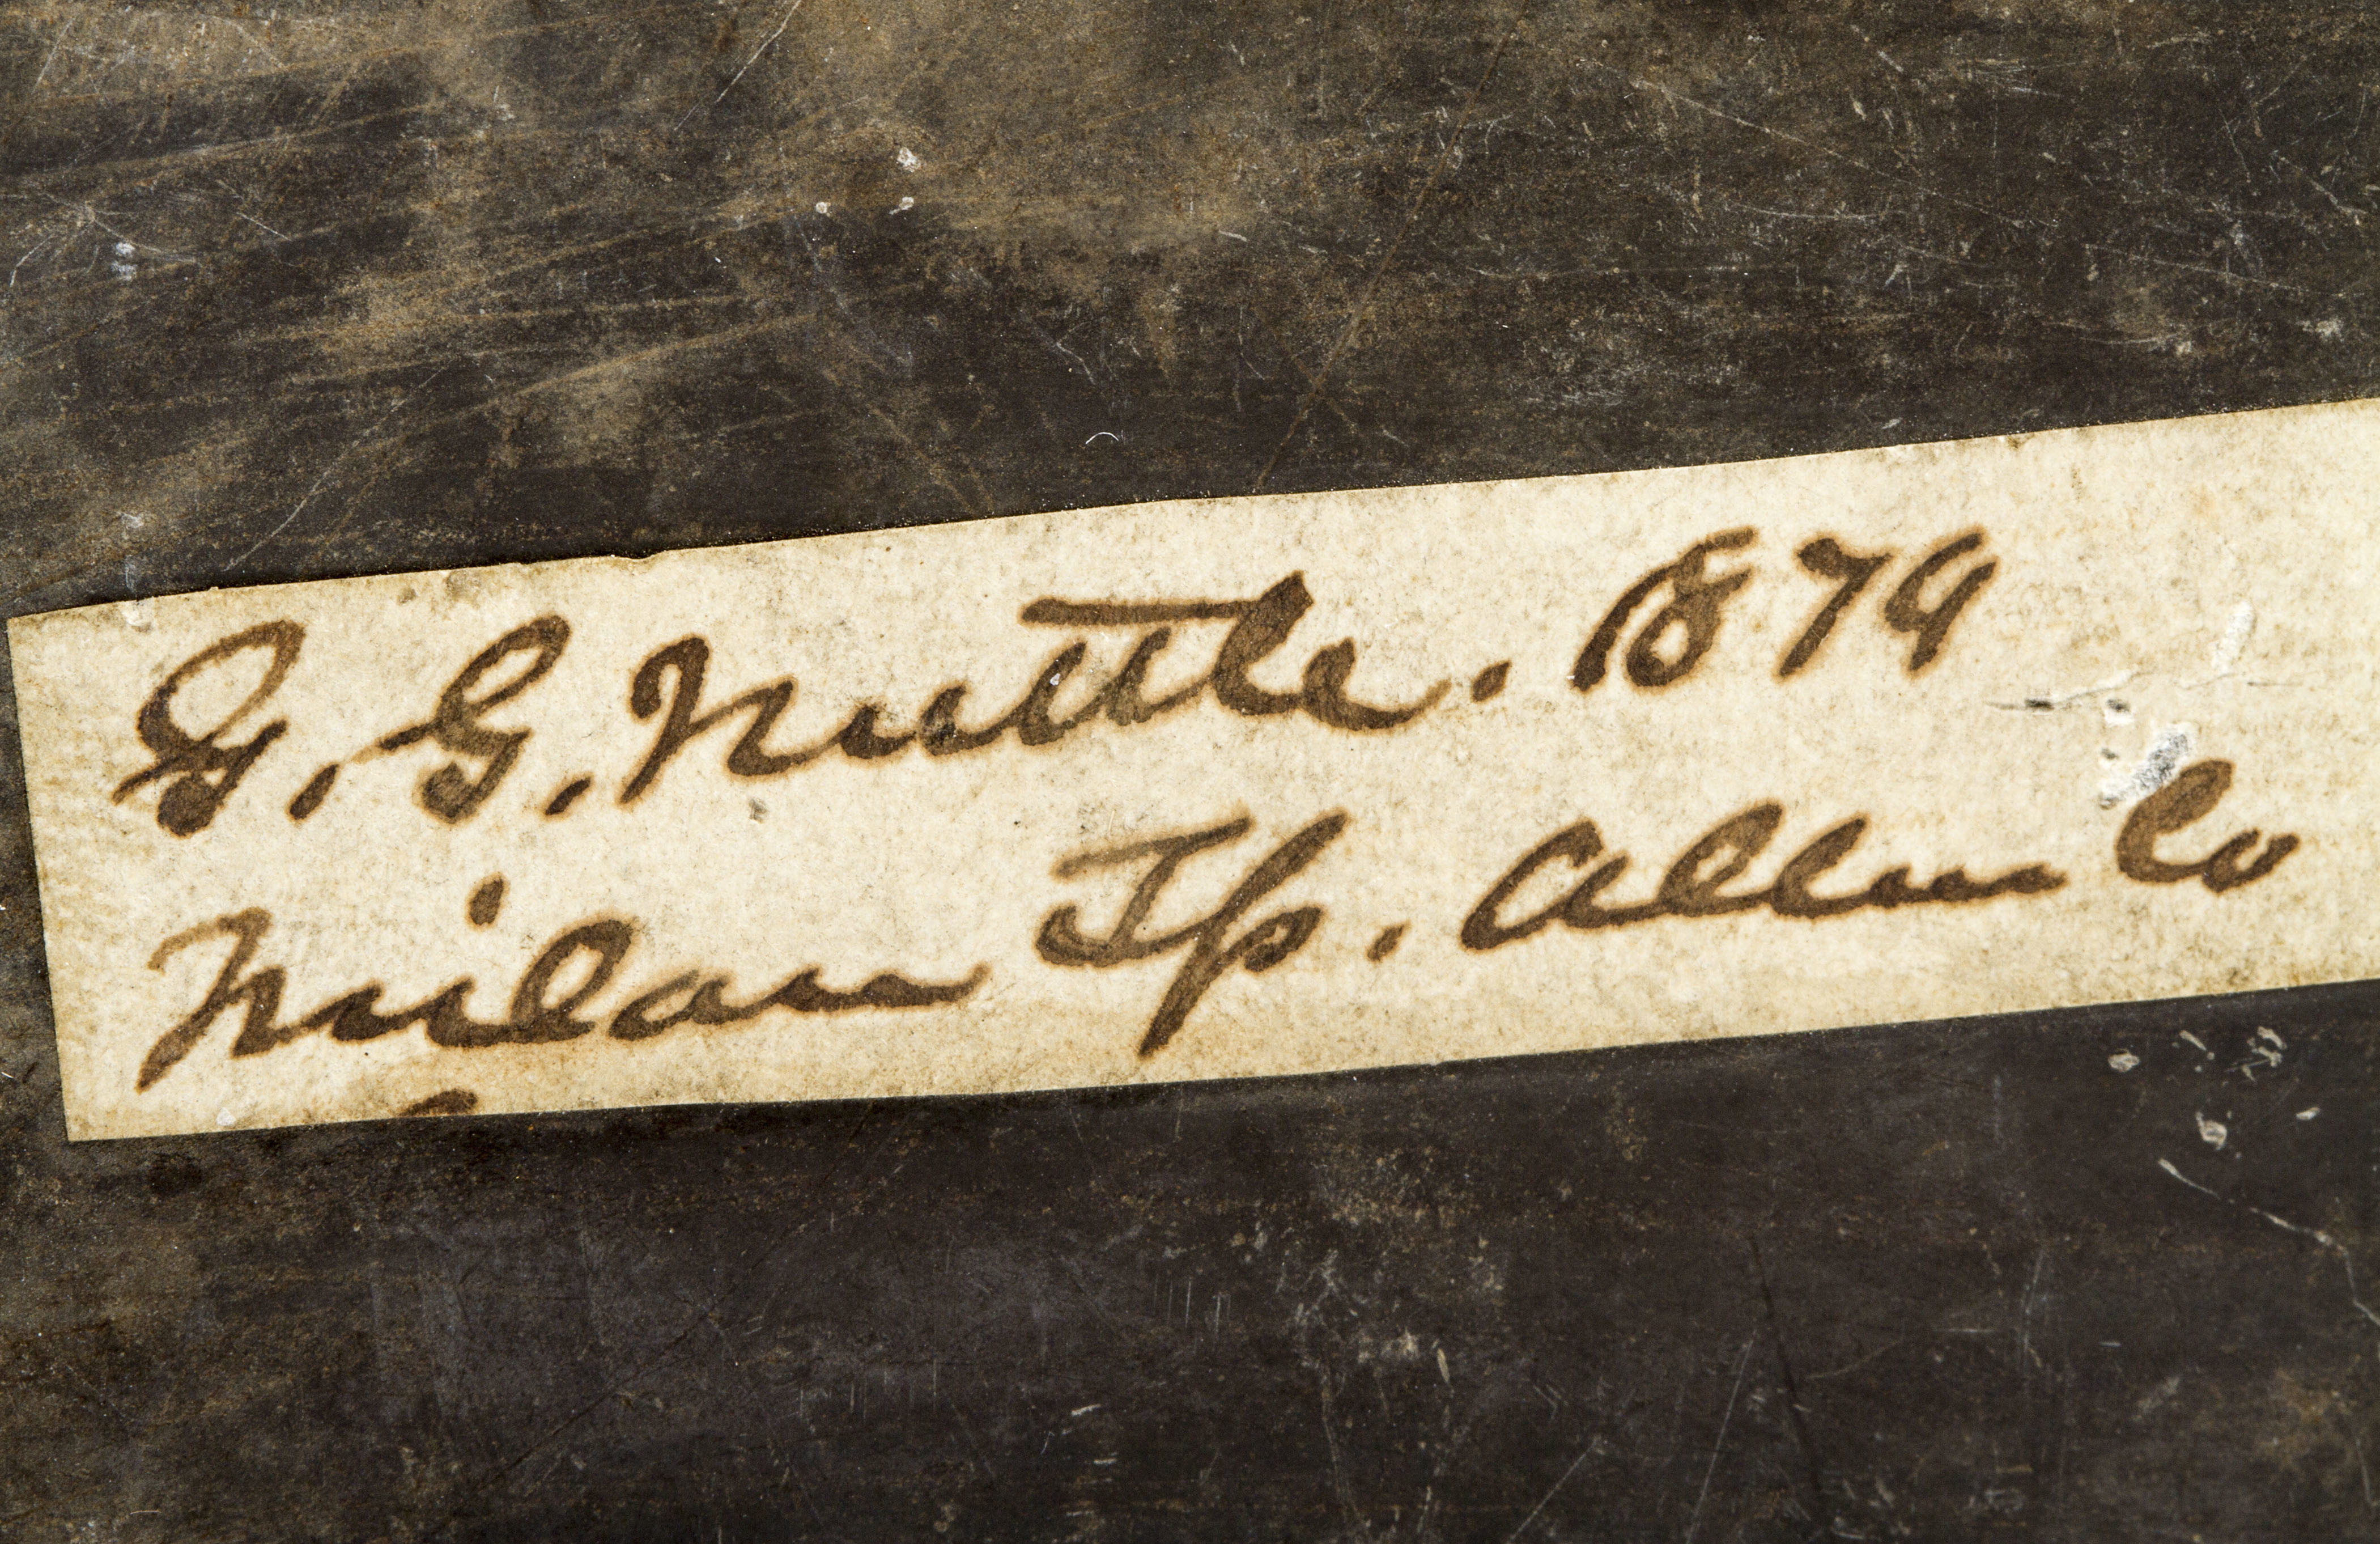 G. G. Nuttle. 1879
Milan Tp. Allen Co